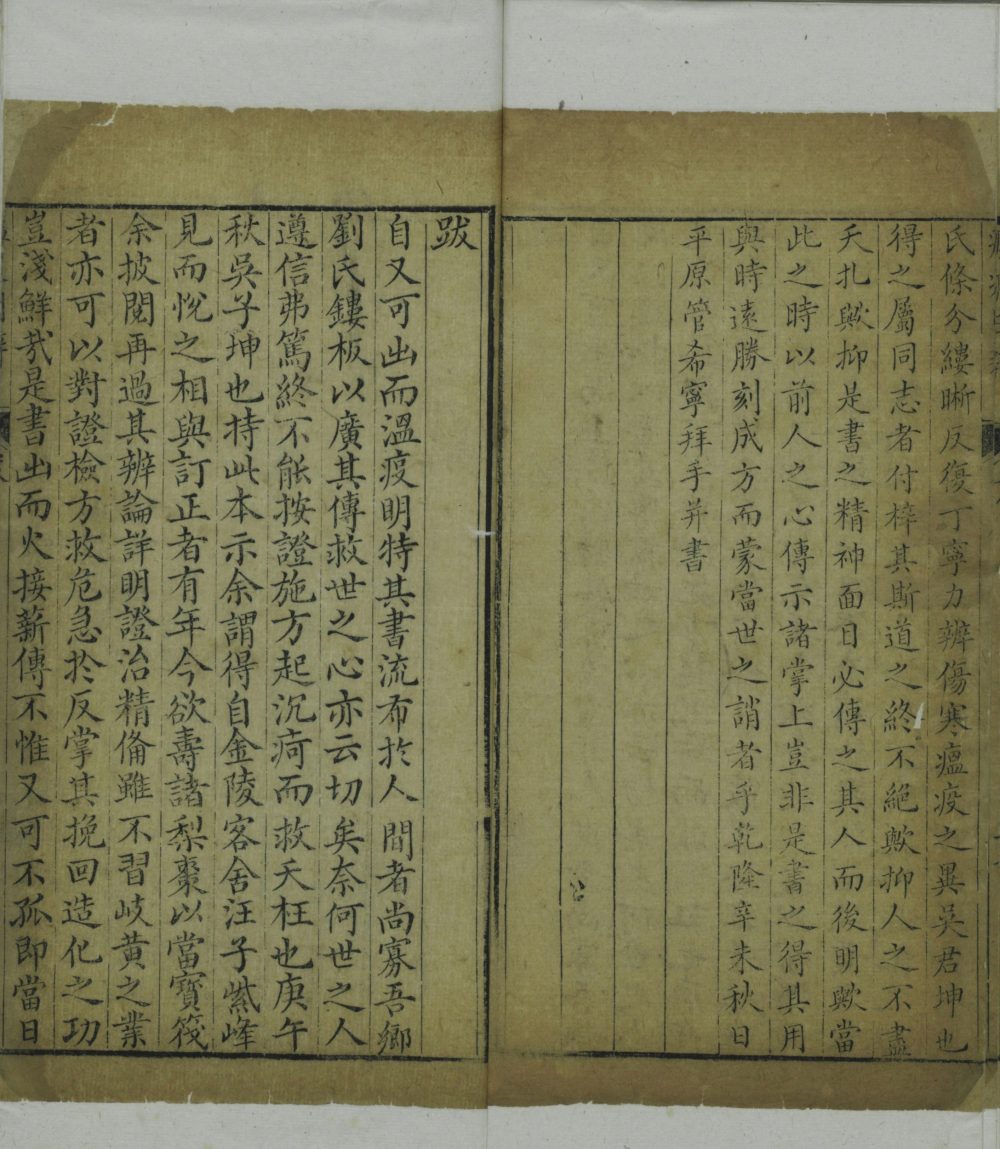 氏條分縷晰反復丁寧力辨傷寒瘟疫之異吳君坤也
得之屬同志者付梓其斯道之終不絕歟抑人之不盡
夭札歟抑是書之精神面目必傳之其人而後明歟當
此之時以前人之心傳示諸掌上豈非是書之得其用
與時遠勝刻成方而蒙當世之誚者乎乾隆辛未秋日
平原管希寧拜手并書
跋
自又可出而溫疫明特其書流布於人間者尚寡吾鄉
劉氏鏤板以廣其傳救世之心亦云切矣奈何世之人
遵信弗篤終不能按證施方起沉疴而救夭枉也庚午
秋吳子坤也持此本示余謂得自金陵客舍汪子紫峰
見而悅之相與訂正者有年今欲壽諸梨棗以當寶筏
余披閱再過其辨論詳明證治精俻雖不習岐黃之業
者亦可以對證檢方救危急於反掌其挽回造化之功
豈淺鮮哉是書出而火接薪傳不惟又可不孤即當日